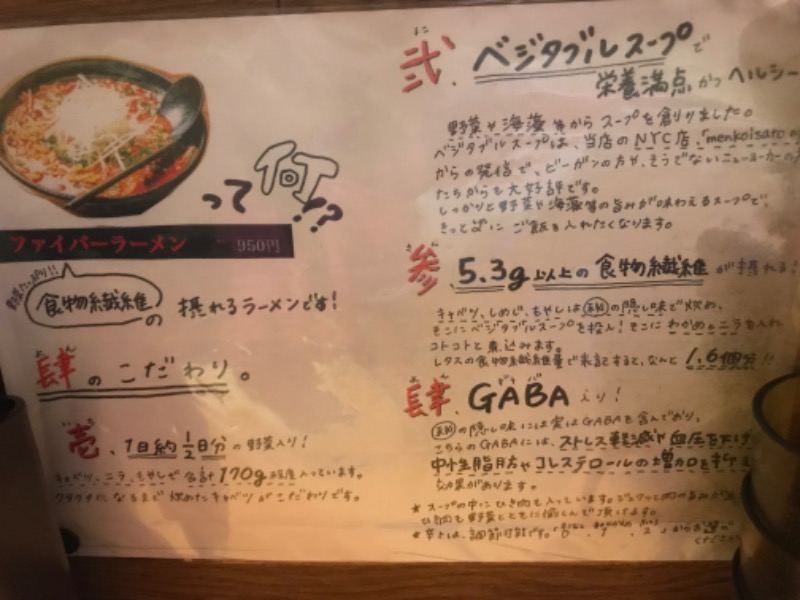 って何!?
ファイバーラーメン 950円
食物繊維の摂れるラーメンです!
よん
肆のこだわり。
いち
壱、1日約1/2日分の野菜入り!
キャベツ、ニラ、もやしで合計170g程度入っています。
クタクタになるまで炒めたキャベツがこだわりです。
に
弐、ベジタブルスープで
栄養満点かつヘルシー
野菜や海藻等からスープを創りました。
ベジタブルスープは、当店のNYC店、「menkoisato
からの発信で、ビーガンの方や、そうでないニューヨーカーの
たちからも大好評です。
しっかりと野菜や海藻等の旨みが味わえるスープで、
きっと〆にご飯を入れたくなります。
さん
参、5.3g以上の食物繊維が摂れる!
キャベツ、しめじ、もやしは の隠し味で炒め、
そこにベジタブルスープを投入!そこにわかめとニラを入れ
コトコトと煮込みます。
レタスの食物繊維量で表記すると、なんと1.6個分!!
よん ギャバ
肆、GABA入り!
の隠し味には実はGABAを含んでおり、
こちらのGABAには、ストレス軽減や血圧を下げ
中性脂肪やコレステロールの増加を抑え
効果があります。
★スープの中にひき肉も入っています。ジュワッと肉の旨みが
ひき肉も野菜とともに愉しんで頂けます。
★辛さは、調節可能です。 0、1、2 よりお選び
ください